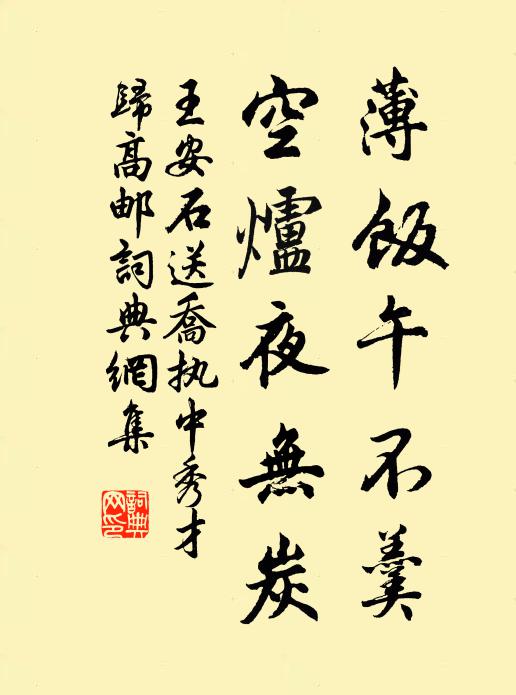 薄飯午不羹
空爐夜無炭
王安石送喬执中秀才
歸高邮詞典網集
詞典
网印